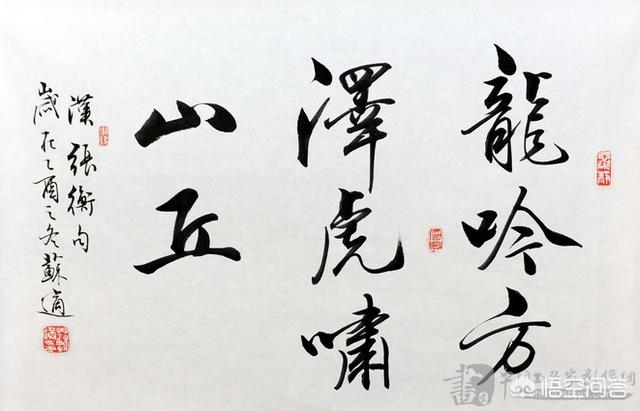 龍吟方
澤虎嘯
山丘
漢張衡句
歲在乙酉之冬蘇適
悟空问答